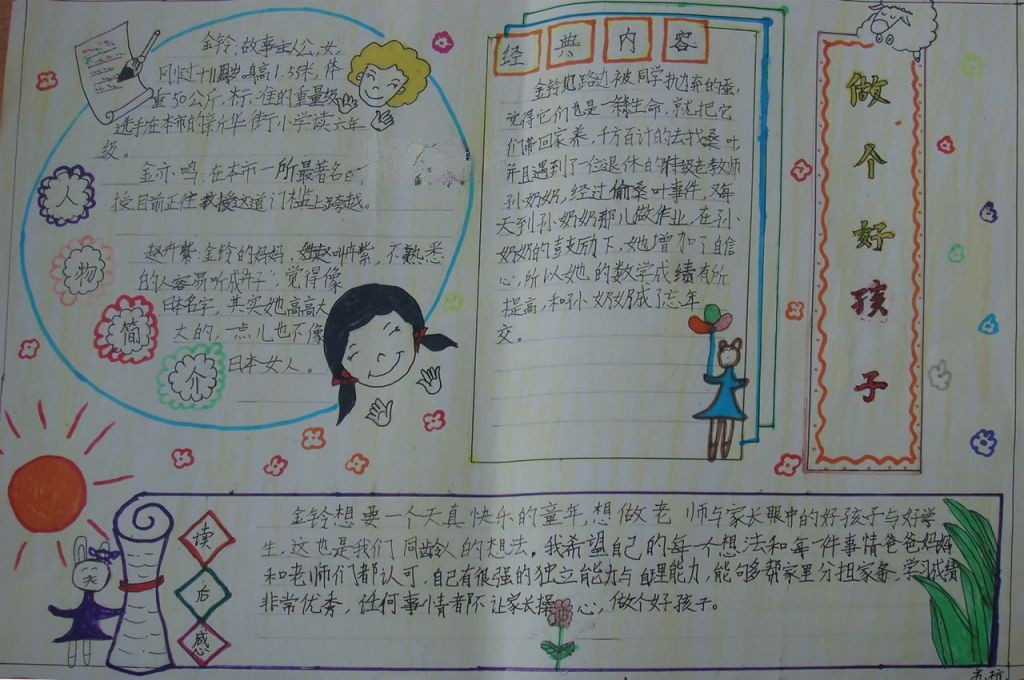 人
物
简
介
金铃:故事主人公,女,
刚过十八周岁,身高1.35米,体
重50公斤.标准的重量级
选手在本市的新华街小学读六年
级。
金亦鸣:在本市一所最著名
授目前正往教授这道门槛上跨越。
赵卉紫:金铃的妈妈.她赵叫卉紫,不熟悉
的人容易听成"卉子",觉得像
日本名字,其实她高高大
大的,一点儿也不像
日本女人。
经典内容
金铃把路边被同学扔弃的蚕,
觉得它们也是一条生命,就把它
们带回家养,千方百计的去找桑叶
并且遇到了一位退休的特级老教师
孙奶奶,经过偷桑叶事件,每
天到孙奶奶那儿做作业,在孙
奶奶的鼓励下,她增加了自信
心,所以她的数学成绩有所
提高,和孙奶奶成了忘年
交。
做个好孩子
读后感
金铃想要一个天真快乐的童年,想做老师与家长眼中的好孩子与好学
生,这也是我们同龄人的想法。我希望自己的每个想法和每一件事情爸爸妈妈
和老师们都认可,自己有很强的独立能力与自理能力,能够多帮家里分担家务,学习成绩
非常优秀,任何事情都不让家长操心,做个好孩子。